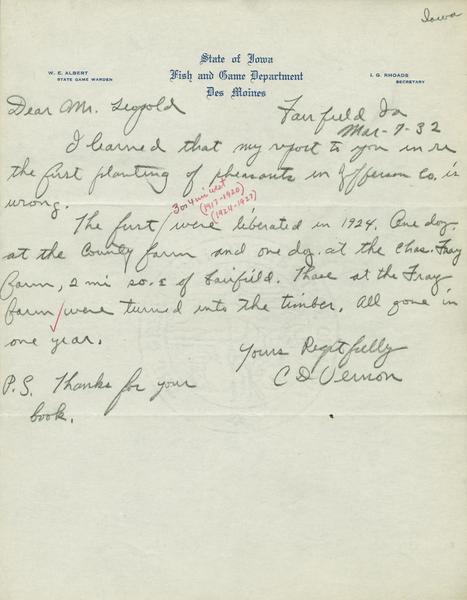 Iowa
State of Iowa
Fish and Game Department
Des Moines
W. E. ALBERT
STATE GAME WARDEN
I. G. RHOADS
SECRETARY
Fairfield Ia
Mar-7-32
Dear Mr. Leopold
I learned that my report to you in re
the first planting of pheasants in Jefferson Co. is
wrong.
3 or 4 mi west
(1917-1920)
(1924-1927)
The first were liberated in 1924. One doz.
at the County farm and one doz. at the Chas. Fray
farm, 2 mi so. E of Fairfield. Those at the Fray
farm were turned into the timber. All gone in
one year.
Yours Respectfully
C D Vernon
P.S. Thanks for your
book.